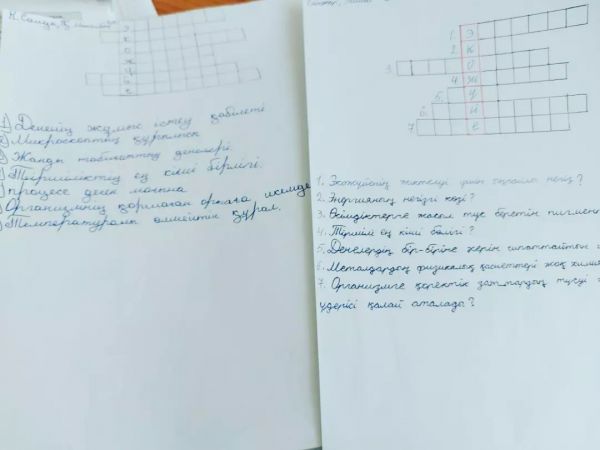 Э
К
О
Ж
Ү
Й
Е
Дененің жұмыс істеу қабілеті
Микроскоптың құрылысы
Жанды табиғаттың денелері.
Тіршіліктің ең кіші бірлігі.
процесс
Организмнің қоршаған ортаға икемде
Температураны өлшейтін құрал.
1. Э
2. К
3. О
4. Ж
5. Ү
6. Й
7. Е
1. Экожүйенің үшін негіз?
2. Энергияның негізгі көзі?
3. Өсімдіктерге жасыл түс беретін пигмент
4. Тіршілік ең кіші бөлігі?
5. Денелердің бір-біріне әсерін сипаттайтын
6. Металдардың физикалық қасиеттері жоқ хими
7. Организмге қоректік заттардың түсуі
үдерісі қалай аталады?